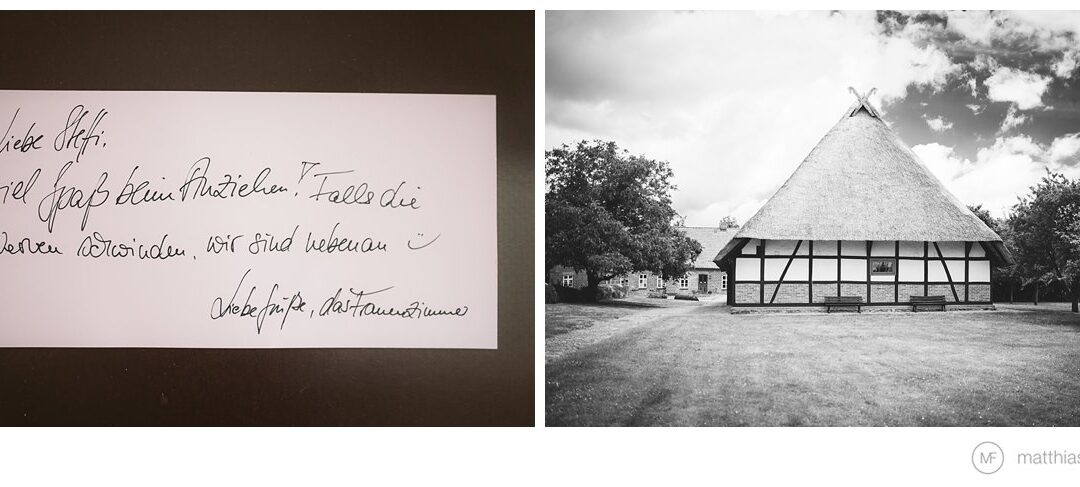 Liebe Steffi,
iel Spaß beim Anziehen! Falls die
Nerven schwinden, wir sind nebenan ☺
Liebe Grüße, das Frauenzimmer
MF matthias